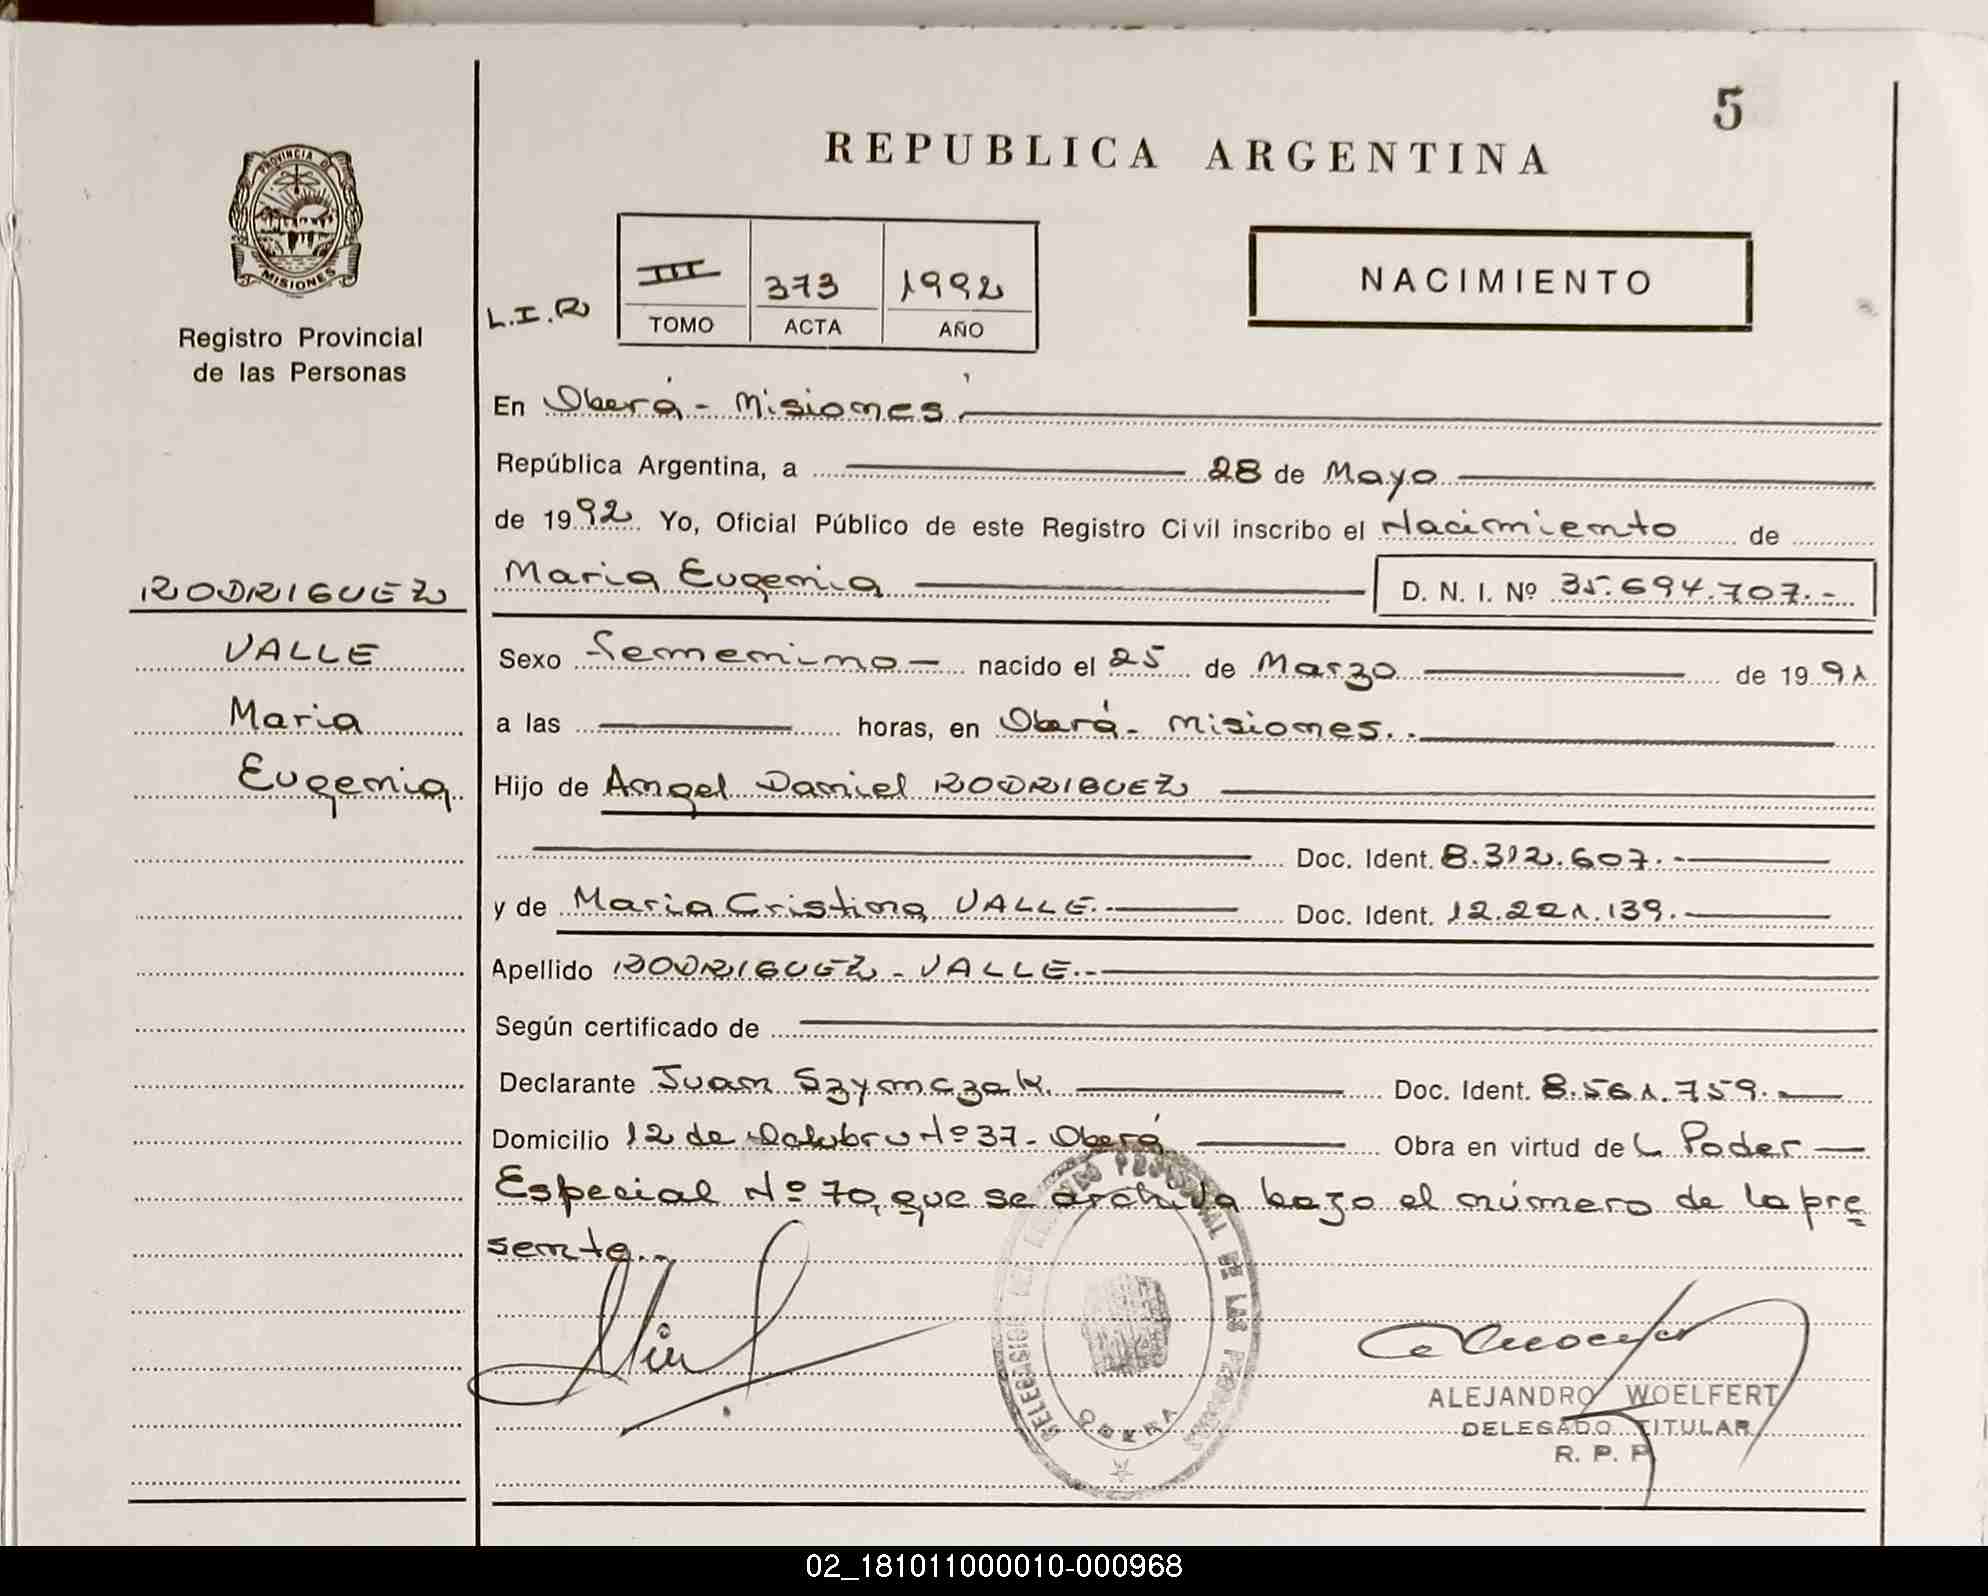 5
REPUBLICA ARGENTINA
PROVINCIA DE
MISIONES
Registro Provincial
de las Personas
L.I.R
III 373 1992
TOMO ACTA AÑO
NACIMIENTO
En Oberá - Misiones
República Argentina, a 28 de Mayo
de 1992 Yo, Oficial Público de este Registro Civil inscribo el Nacimiento de
Maria Eugenia D. N. I. Nº 35.694.707.-
RODRIGUEZ
VALLE
Maria
Eugenia
Sexo Femenino - nacido el 25 de Marzo de 1991
a las horas, en Oberá - Misiones.
Hijo de Angel Daniel RODRIGUEZ
Doc. Ident. 8.312.607.-
y de Maria Cristina VALLE.- Doc. Ident. 12.221.139.-
Apellido RODRIGUEZ - VALLE.-
Según certificado de
Declarante Juan Szymczak. Doc. Ident. 8.561.759.-
Domicilio 12 de Octubre Nº 37 - Oberá Obra en virtud de L Poder
Especial Nº 70, que se archiva bajo el número de la pre
sente.-
DELEGACION DEL REGISTRO PROVINCIAL DE LAS PERSONAS
OBERA
ALEJANDRO WOELFERT
DELEGADO TITULAR
R. P. P
02_181011000010-000968